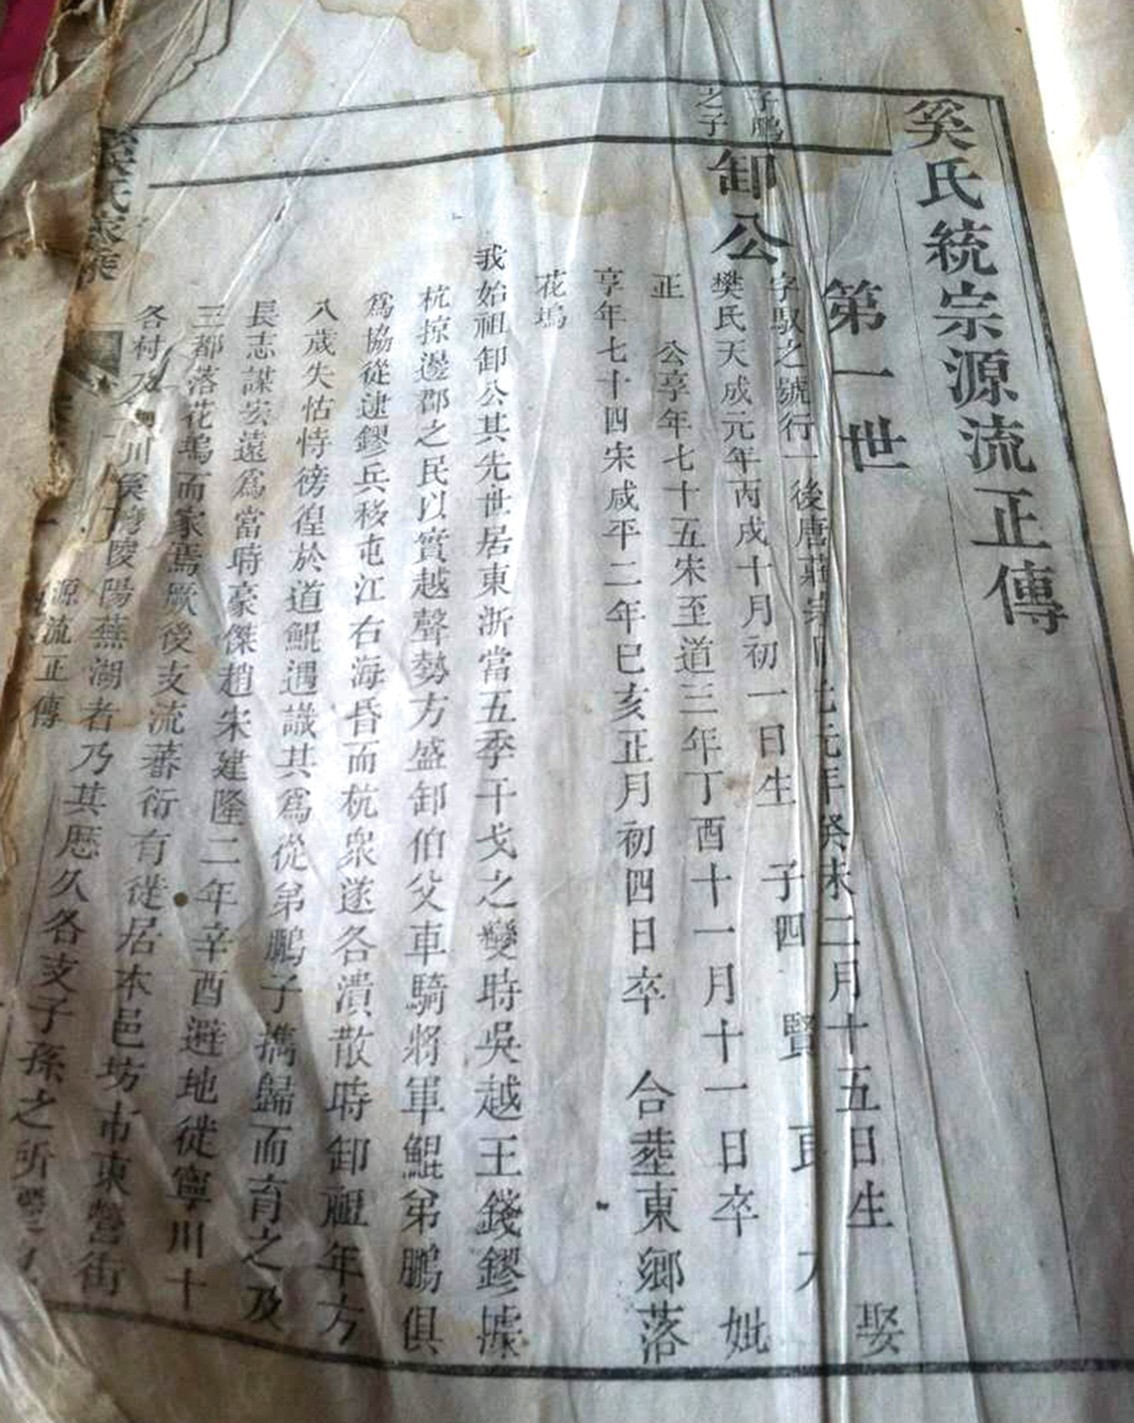 奚氏統宗源流正傳
第一世
子鵬
之子
卸公
字馭之號行一後唐莊宗同光元年癸未二月十五日生 娶
樊氏天成元年丙戌十月初一日生 子四 賢
正 公享年七十五宋至道三年丁酉十一月十一日卒 妣
享年七十四宋咸平二年巳亥正月初四日卒 合塟東鄉落
花塢
我始祖卸公其先世居東浙當五季干戈之變時吳越王錢鏐據
杭掠邊郡之民以實越聲勢方盛卸伯父車騎將軍鯤弟鵬俱
爲協從逮鏐兵移屯江右海昏而杭衆遂各潰散時卸祖年方
八歲失怙恃徬徨於道鯤遇識其爲從弟鵬子擕歸而育之及
長志謀宏遠爲當時豪傑趙宋建隆二年辛酉避地徙寧川十
三都落花塢而家焉厥後支流蕃衍有徙居本邑坊市東營街
各村及 川奚 陵陽蕪湖者乃其歷久各支子孫之所
奚氏家乘
源流正傳